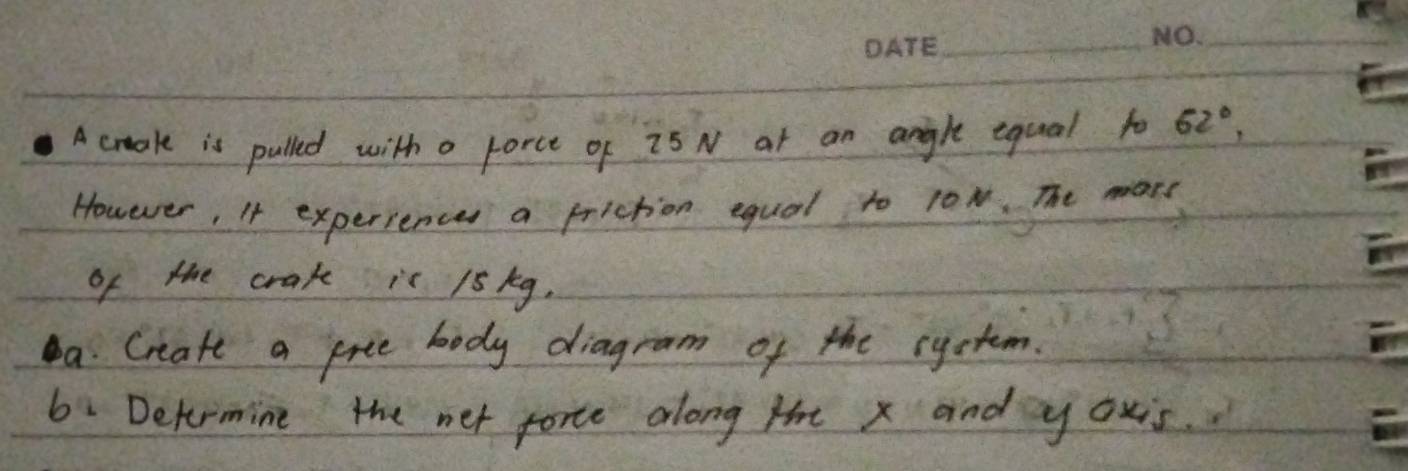 DATE NO.
• A create is pulled with a force of 25 N at an angle equal to 62°.
However, it experiences a friction equal to 10 N. The mass
of the crate is 15 kg.
a. Create a free body diagram of the system.
b. Determine the net force along the x and y axis.